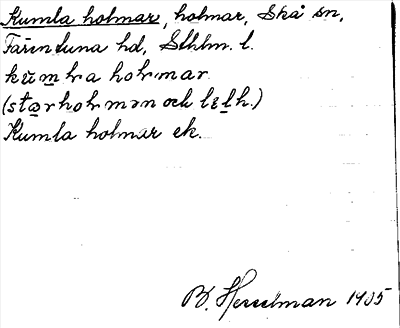 Kumla holmar, holmar, Skå sn,
Färentuna hd, Sthlm. l.
kumla holmar
(stærholmən och lełh.)
Kumla holmar ek.
B. Hesselman 1905